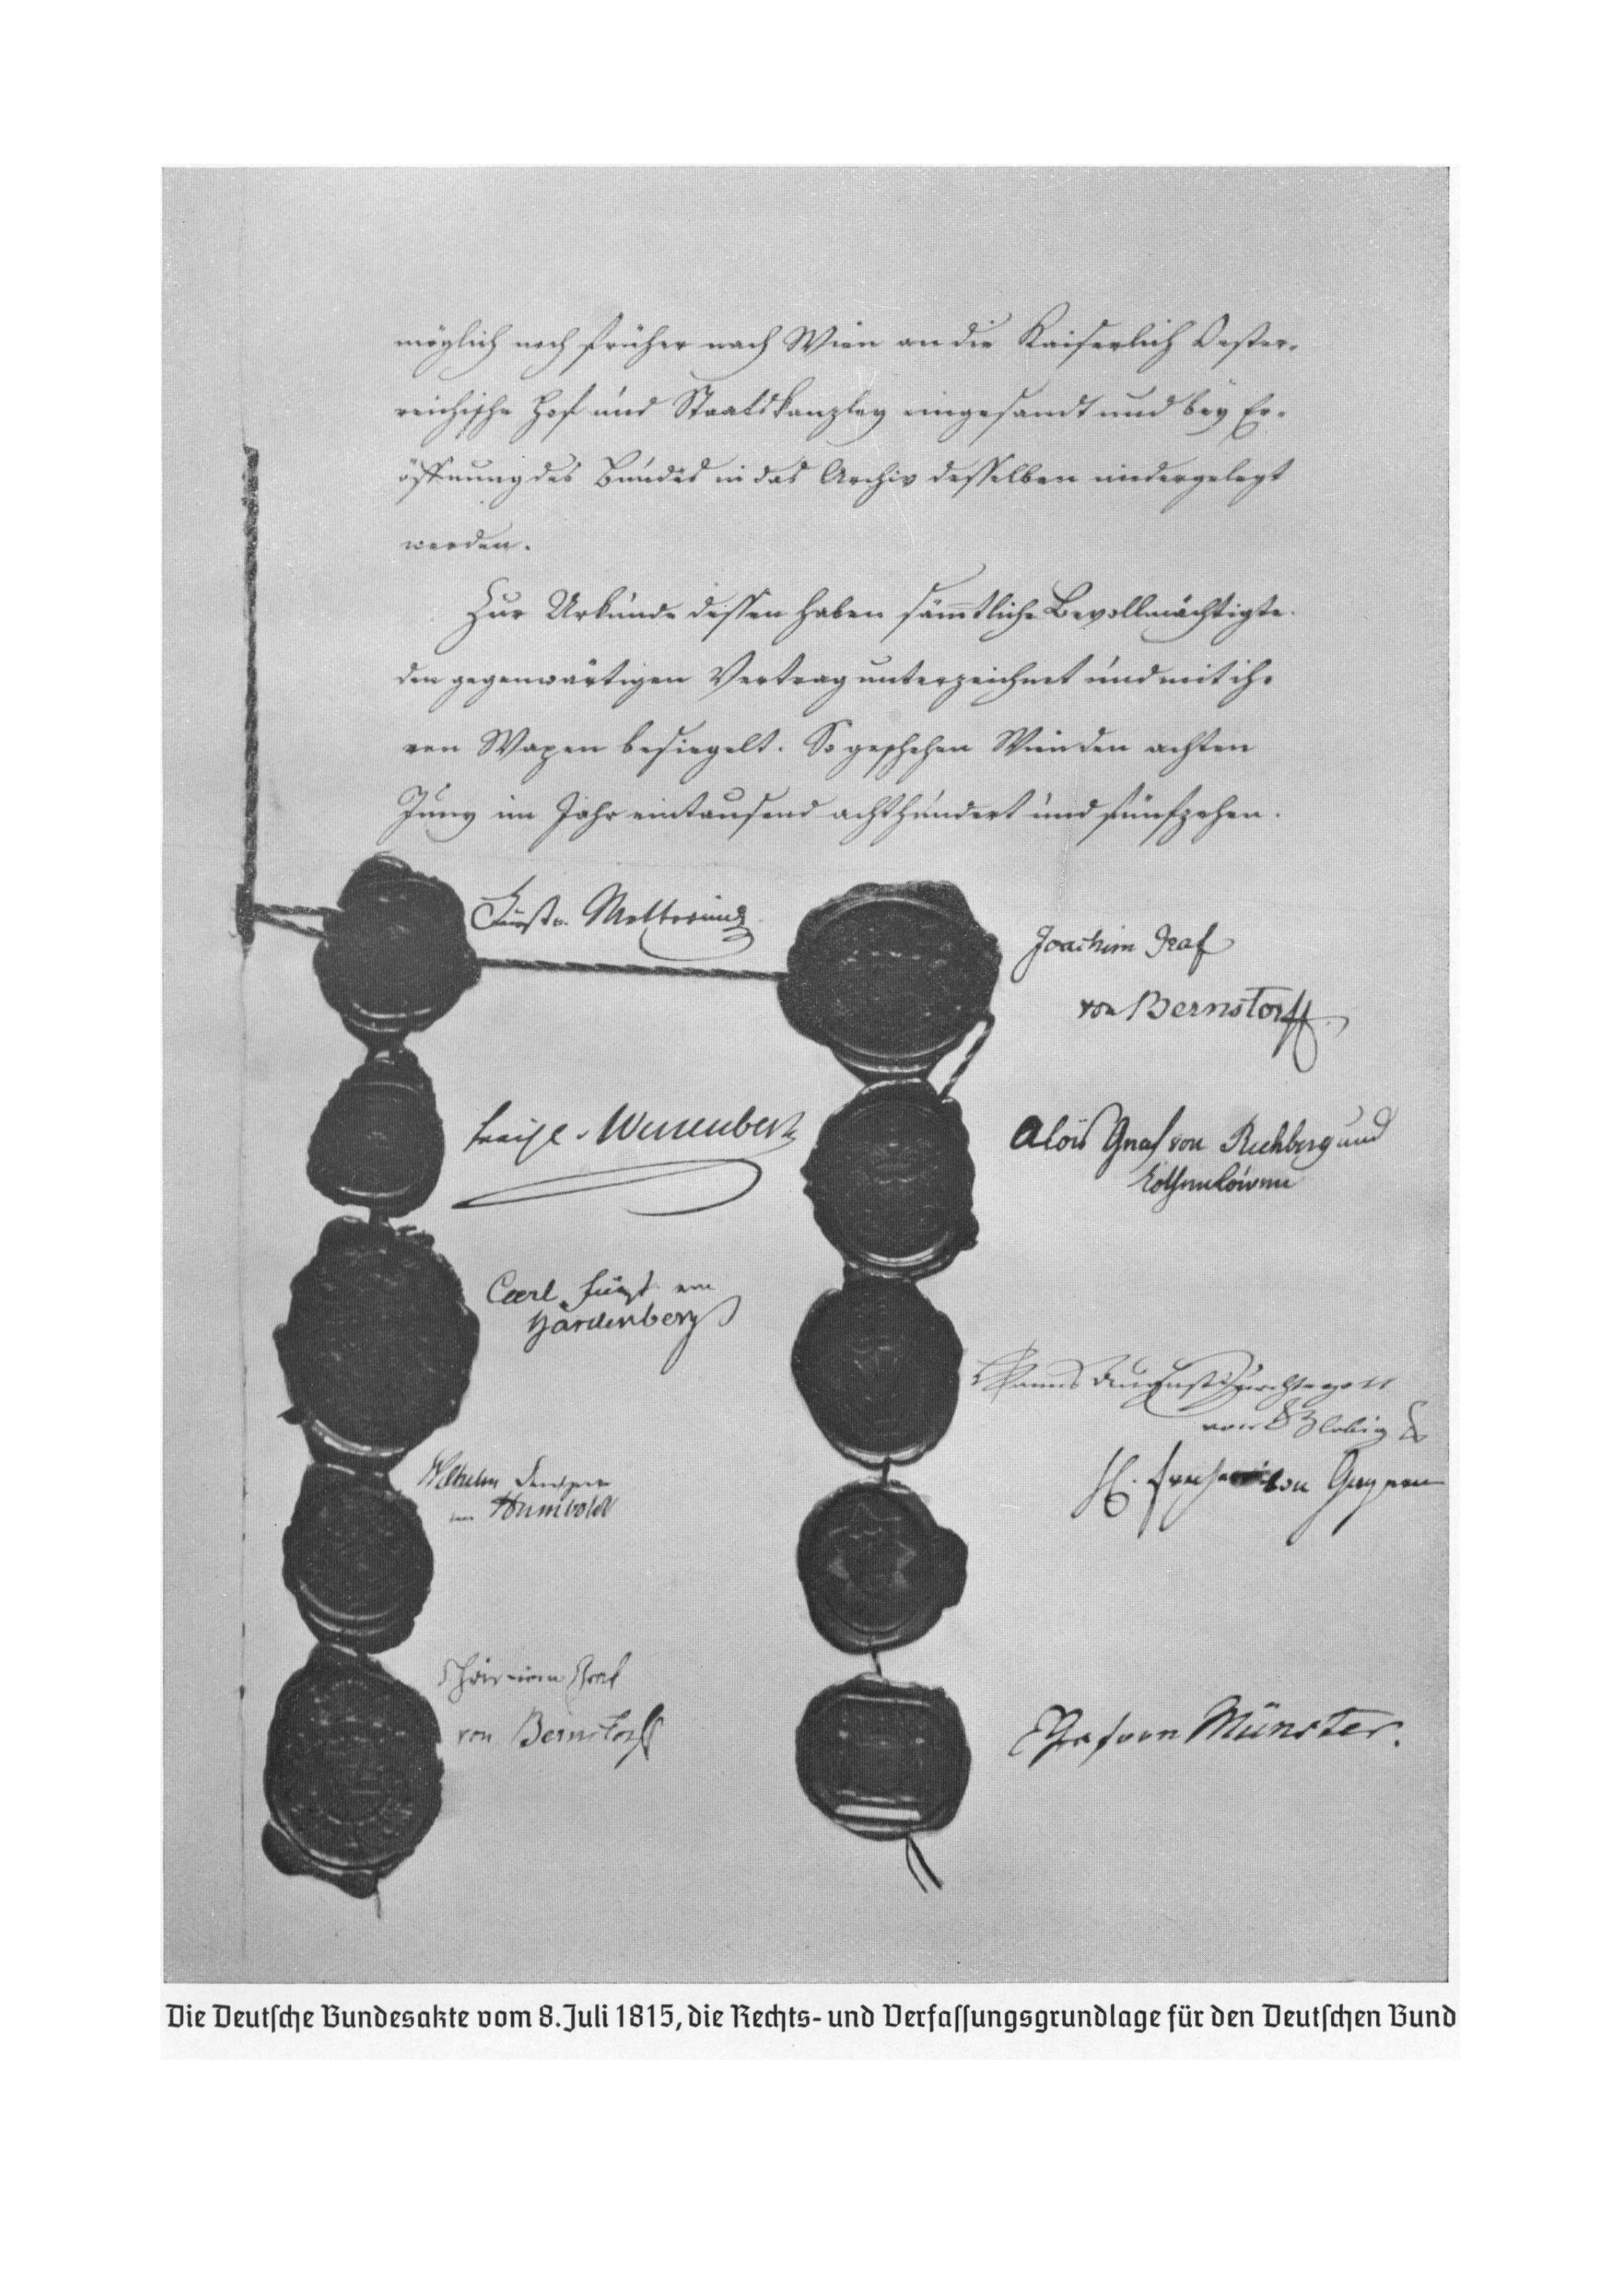 möglich noch früher nach Wien an die Kaiserlich Oester-
reichische Hof und Staatskanzley eingesandt und bey Er-
öffnung des Bundes in das Archiv desselben niedergelegt
werden.
Zur Urkunde dessen haben sämmtliche Bevollmächtigte
den gegenwärtigen Vertrag unterzeichnet und mit ih-
ren Wapen besiegelt. So geschehen Wien den achten
Juny im Jahr eintausend achthundert und fünfzehen.
Fürst v. Metternich
Joachim Graf
von Bernstorff
Wessenberg
Alois Graf von Rechberg und
Rothenlöwen
Carl Fürst von
Hardenberg
von Globig
Wilhelm
von Humboldt
H. Freiherr von Gagern
Christian Graf
von Bernstorff
Graf von Münster.
Die Deutſche Bundesakte vom 8. Juli 1815, die Rechts- und Verfaſſungsgrundlage für den Deutſchen Bund